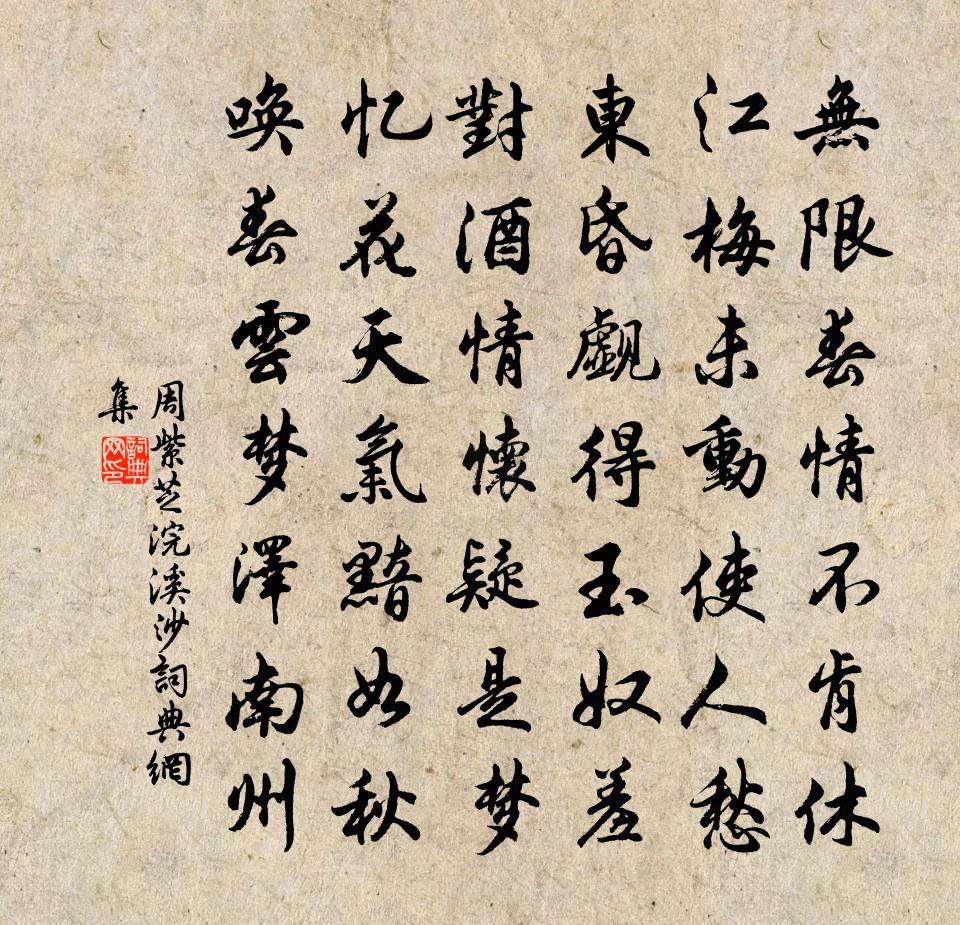 無限春情不肯休
江梅未動使人愁
東昏覷得玉奴羞
對酒情懷疑是梦
忆花天氣黯如秋
喚春雲梦澤南州
周紫芝浣溪沙詞典網
集
詞典
网印